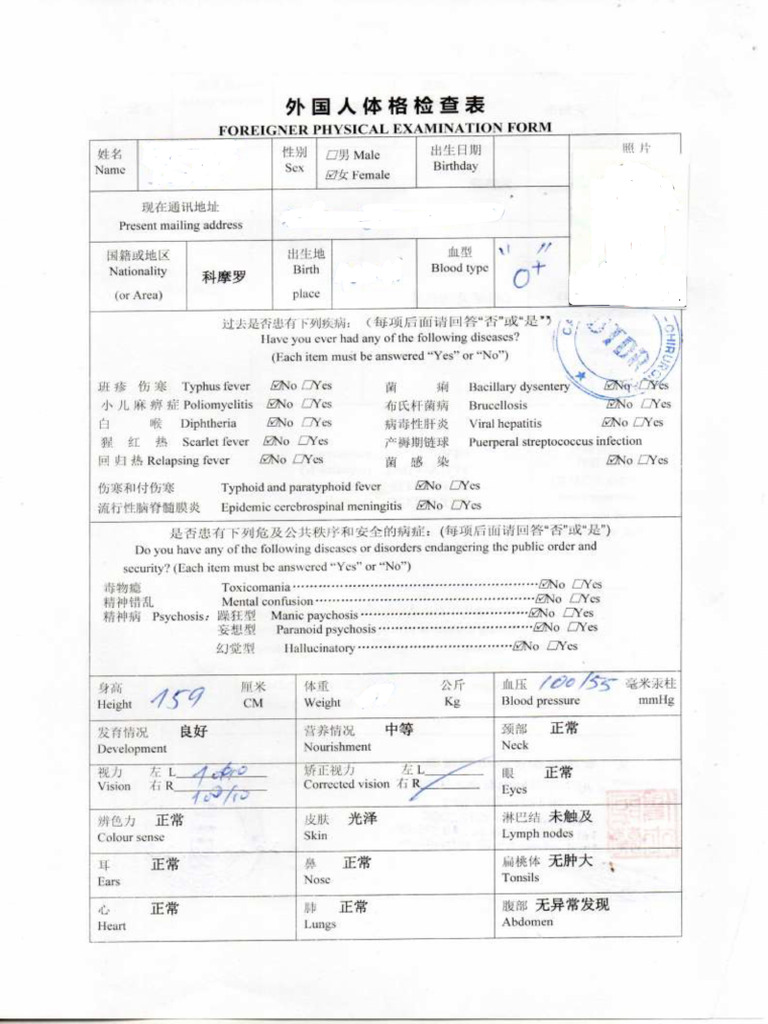 外国人体格检查表
FOREIGNER PHYSICAL EXAMINATION FORM
姓名 Name
性别 Sex
□男 Male
☑女 Female
出生日期 Birthday
照片
现在通讯地址
Present mailing address
国籍或地区 Nationality (or Area)
科摩罗
出生地 Birth place
血型 Blood type
" O+ "
过去是否患有下列疾病：（每项后面请回答“否”或“是”）
Have you ever had any of the following diseases?
(Each item must be answered “Yes” or “No”)
班疹伤寒 Typhus fever ☑No □Yes 菌痢 Bacillary dysentery ☑No □Yes
小儿麻痹症 Poliomyelitis ☑No □Yes 布氏杆菌病 Brucellosis ☑No □Yes
白喉 Diphtheria ☑No □Yes 病毒性肝炎 Viral hepatitis ☑No □Yes
猩红热 Scarlet fever ☑No □Yes 产褥期链球 Puerperal streptococcus infection
回归热 Relapsing fever ☑No □Yes 菌感染 ☑No □Yes
伤寒和付伤寒 Typhoid and paratyphoid fever ☑No □Yes
流行性脑脊髓膜炎 Epidemic cerebrospinal meningitis ☑No □Yes
CHIRURGI
是否患有下列危及公共秩序和安全的病症：（每项后面请回答“否”或“是”）
Do you have any of the following diseases or disorders endangering the public order and
security? (Each item must be answered “Yes” or “No”)
毒物瘾 Toxicomania ☑No □Yes
精神错乱 Mental confusion ☑No □Yes
精神病 Psychosis：躁狂型 Manic paychosis ☑No □Yes
妄想型 Paranoid psychosis ☑No □Yes
幻觉型 Hallucinatory ☑No □Yes
身高 Height 159 厘米 CM
体重 Weight 公斤 Kg
血压 Blood pressure 100/55 毫米汞柱 mmHg
发育情况 Development 良好
营养情况 Nourishment 中等
颈部 Neck 正常
视力 Vision 左 L 右 R 100/10
矫正视力 Corrected vision 左 L 右 R
眼 Eyes 正常
辨色力 Colour sense 正常
皮肤 Skin 光泽
淋巴结 Lymph nodes 未触及
耳 Ears 正常
鼻 Nose 正常
扁桃体 Tonsils 无肿大
心 Heart 正常
肺 Lungs 正常
腹部 Abdomen 无异常发现